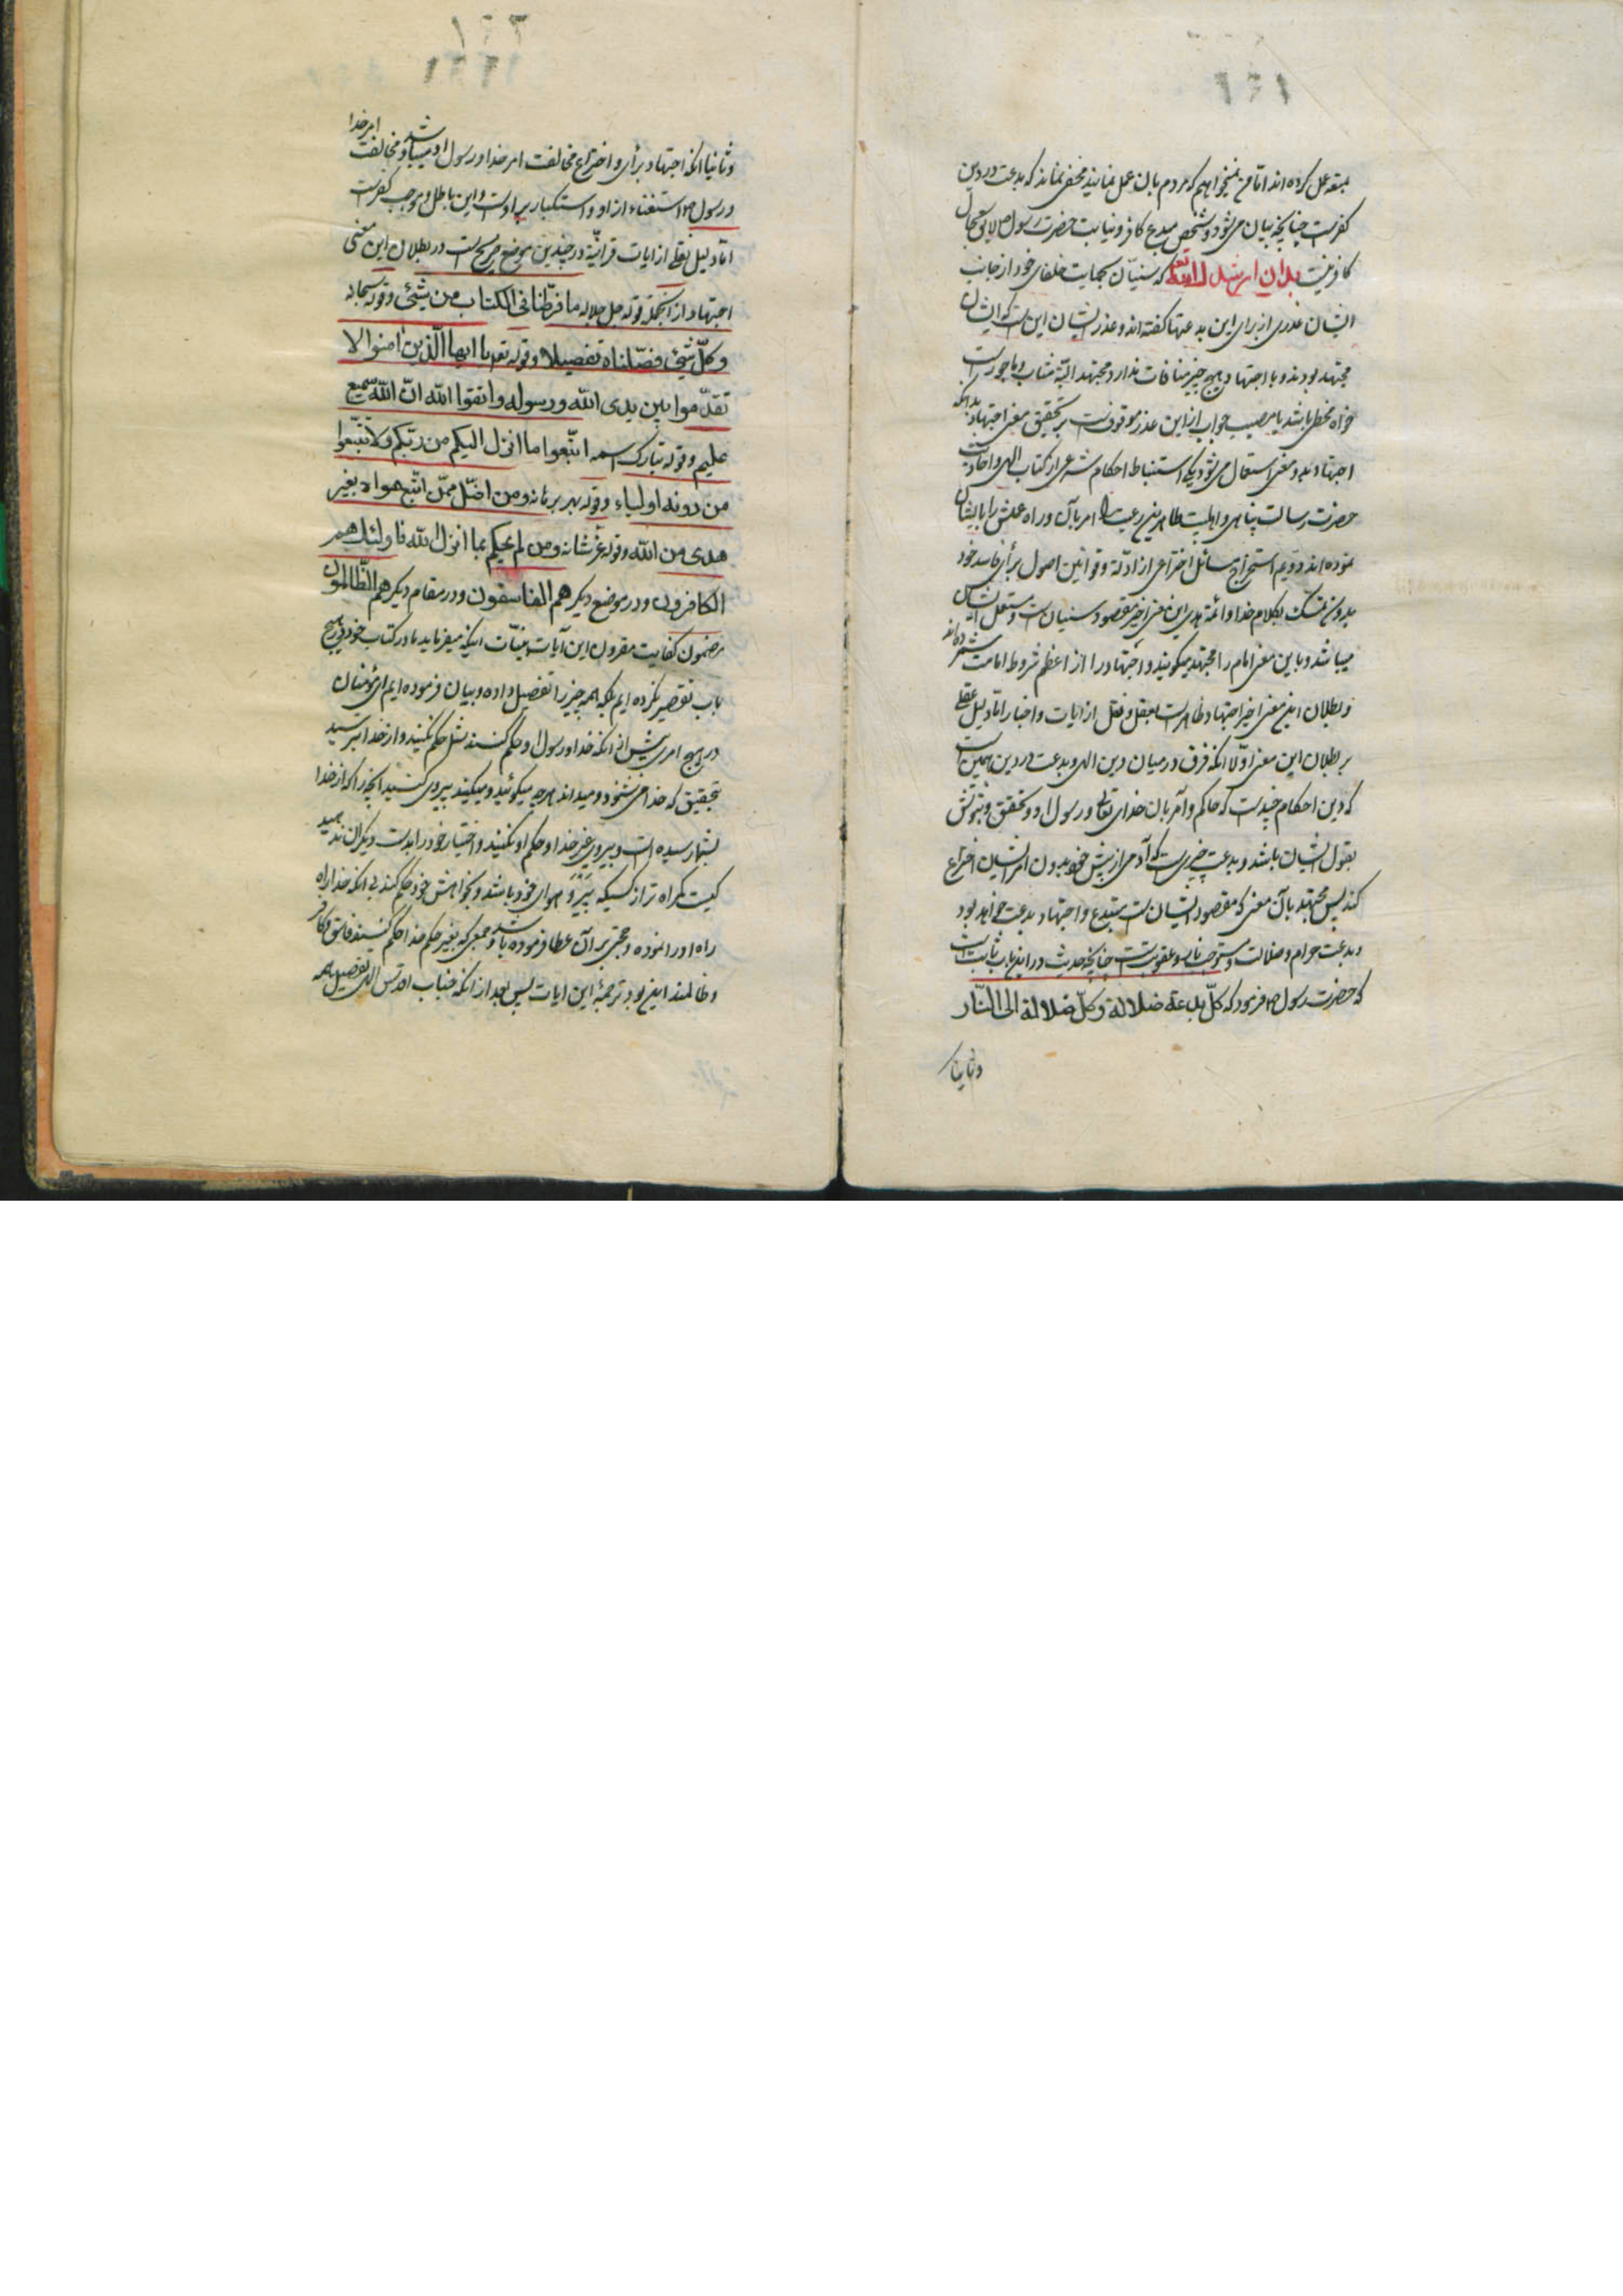 ۱۶۱
بمتعه عمل کرده‌اند اما من نمیخواهم که مردم بان عمل نمایند مخفی نماند که بدعت در دین
کفرست چنانچه بیان می‌شود و شخص مبدع کافر و نیابت حضرت رسول ص لایق بحال
کافر نیست بدان ارشدک الله تعالی که سنیان بحمایت خلفای خود از جانب
ایشان عذری از برای این بدعتها گفته‌اند و عذر ایشان این است که ایشان
مجتهد بودند و با اجتهاد هیچ چیز منافات ندارد و مجتهد البته مثاب و ماجورست
خواه مخطی باشد یا مصیب جواب از این عذر موقوفست بر تحقیق معنی اجتهاد بدانکه
اجتهاد بدو معنی استعمال می‌شود یکی استنباط احکام شرعی از کتاب الهی و احادیث
حضرت رسالت پناهی و اهلبیت طاهرین رعیت را امر بآن و راه علمش را بایشان
نموده‌اند دویم استخراج مسائل اختراعی از ادله و قوانین اصول برأی فاسد خود
بدون تمسک بکلام خدا و ائمه هدی این معنی اخیر مقصود سنیان است و مستعمل ایشان
میباشد و باین معنی امام را مجتهد میگویند و اجتهاد را از اعظم شروط امامت شمرده‌اند
و بطلان این معنی اخیر اجتهاد ظاهرست بعقل و نقل از ایات و اخبار اما دلیل عقلی
بر بطلان این معنی اولا آنکه فرق در میان دین الهی و بدعت در دین همین است
که دین احکام چندست که حاکم و آمر بان خدای تعالی و رسول او و تحقق و ثبوتش
بقول ایشان باشد و بدعت چیزیست که آدمی از پیش خود بدون امر ایشان اختراع
کند پس مجتهد بآن معنی که مقصود ایشان است مبتدع و اجتهاد بدعت خواهد بود
و بدعت حرام و ضلالت و مستوجب نار و عقوبت است چنانچه حدیث در این باب ثابت است
که حضرت رسول ص فرمود که کلّ بدعة ضلالة وکلّ ضلالة الی النّار
وثانیا
۱۶۲
وثانیا آنکه اجتهاد برأی و اختراع مخالفت امر خدا و رسول او میباشد و مخالفت امر خدا
و رسول ص استغناء از او و استکبار بر اوست و این باطل و موجب کفرست
اما دلیل نقلی از ایات قرانیّه در چندین موضع صریح است در بطلان این معنی
اجتهاد از آنجمله قوله جل جلاله ما فرّطنا فی الکتاب من شیٔ وقوله سبحانه
وکلّ شیٔ فصّلناه تفصیلا وقوله تعه یا ایها الّذین امنوا لا
تقدّموا بین یدی اللّه ورسوله واتقوا اللّه انّ اللّه سمیع
علیم وقوله تبارک اسمه اتّبعوا ما انزل الیکم من ربّکم ولا تتّبعوا
من دونه اولیاء وقوله بهر برهانه ومن اضلّ ممّن اتّبع هواه بغیر
هدی من اللّه وقوله عز شانه ومن لم یحکم بما انزل اللّه فاولئک هم
الکافرون و در موضع دیگر هم الفاسقون و در مقام دیگر هم الظّالمون
مضمون کفایت مقرون این آیات بینات اینکه میفرماید ما در کتاب خود در هیچ
باب تقصیر نکرده‌ایم بلکه همه چیز را تفصیل داده و بیان فرموده‌ایم ای مؤمنان
در هیچ امری پیش از آنکه خدا و رسول او حکم کنند شما حکم نکنید و از خدا بترسید
بتحقیق که خدا می‌شنود و میداند هر چه میگوئید و میکنید پیروی کنید آنچه را که از خدا
بشما رسیده است و پیروی غیر خدا و حکم او نکنید و اختیار خود را بدست دیگران ندهید
کیست گمراه تر از کسیکه پیرو هوای خود باشد و بخواهش خود حکم کند بی آنکه خدا براه
راه او را نموده و حجتی بر آن عطا فرموده باشد و جمعی که بغیر حکم خدا حکم کنند فاسق و کافر
و ظالمند این بود ترجمهٔ این ایات پس بعد از آنکه جناب اقدس الهی تفصیل همه